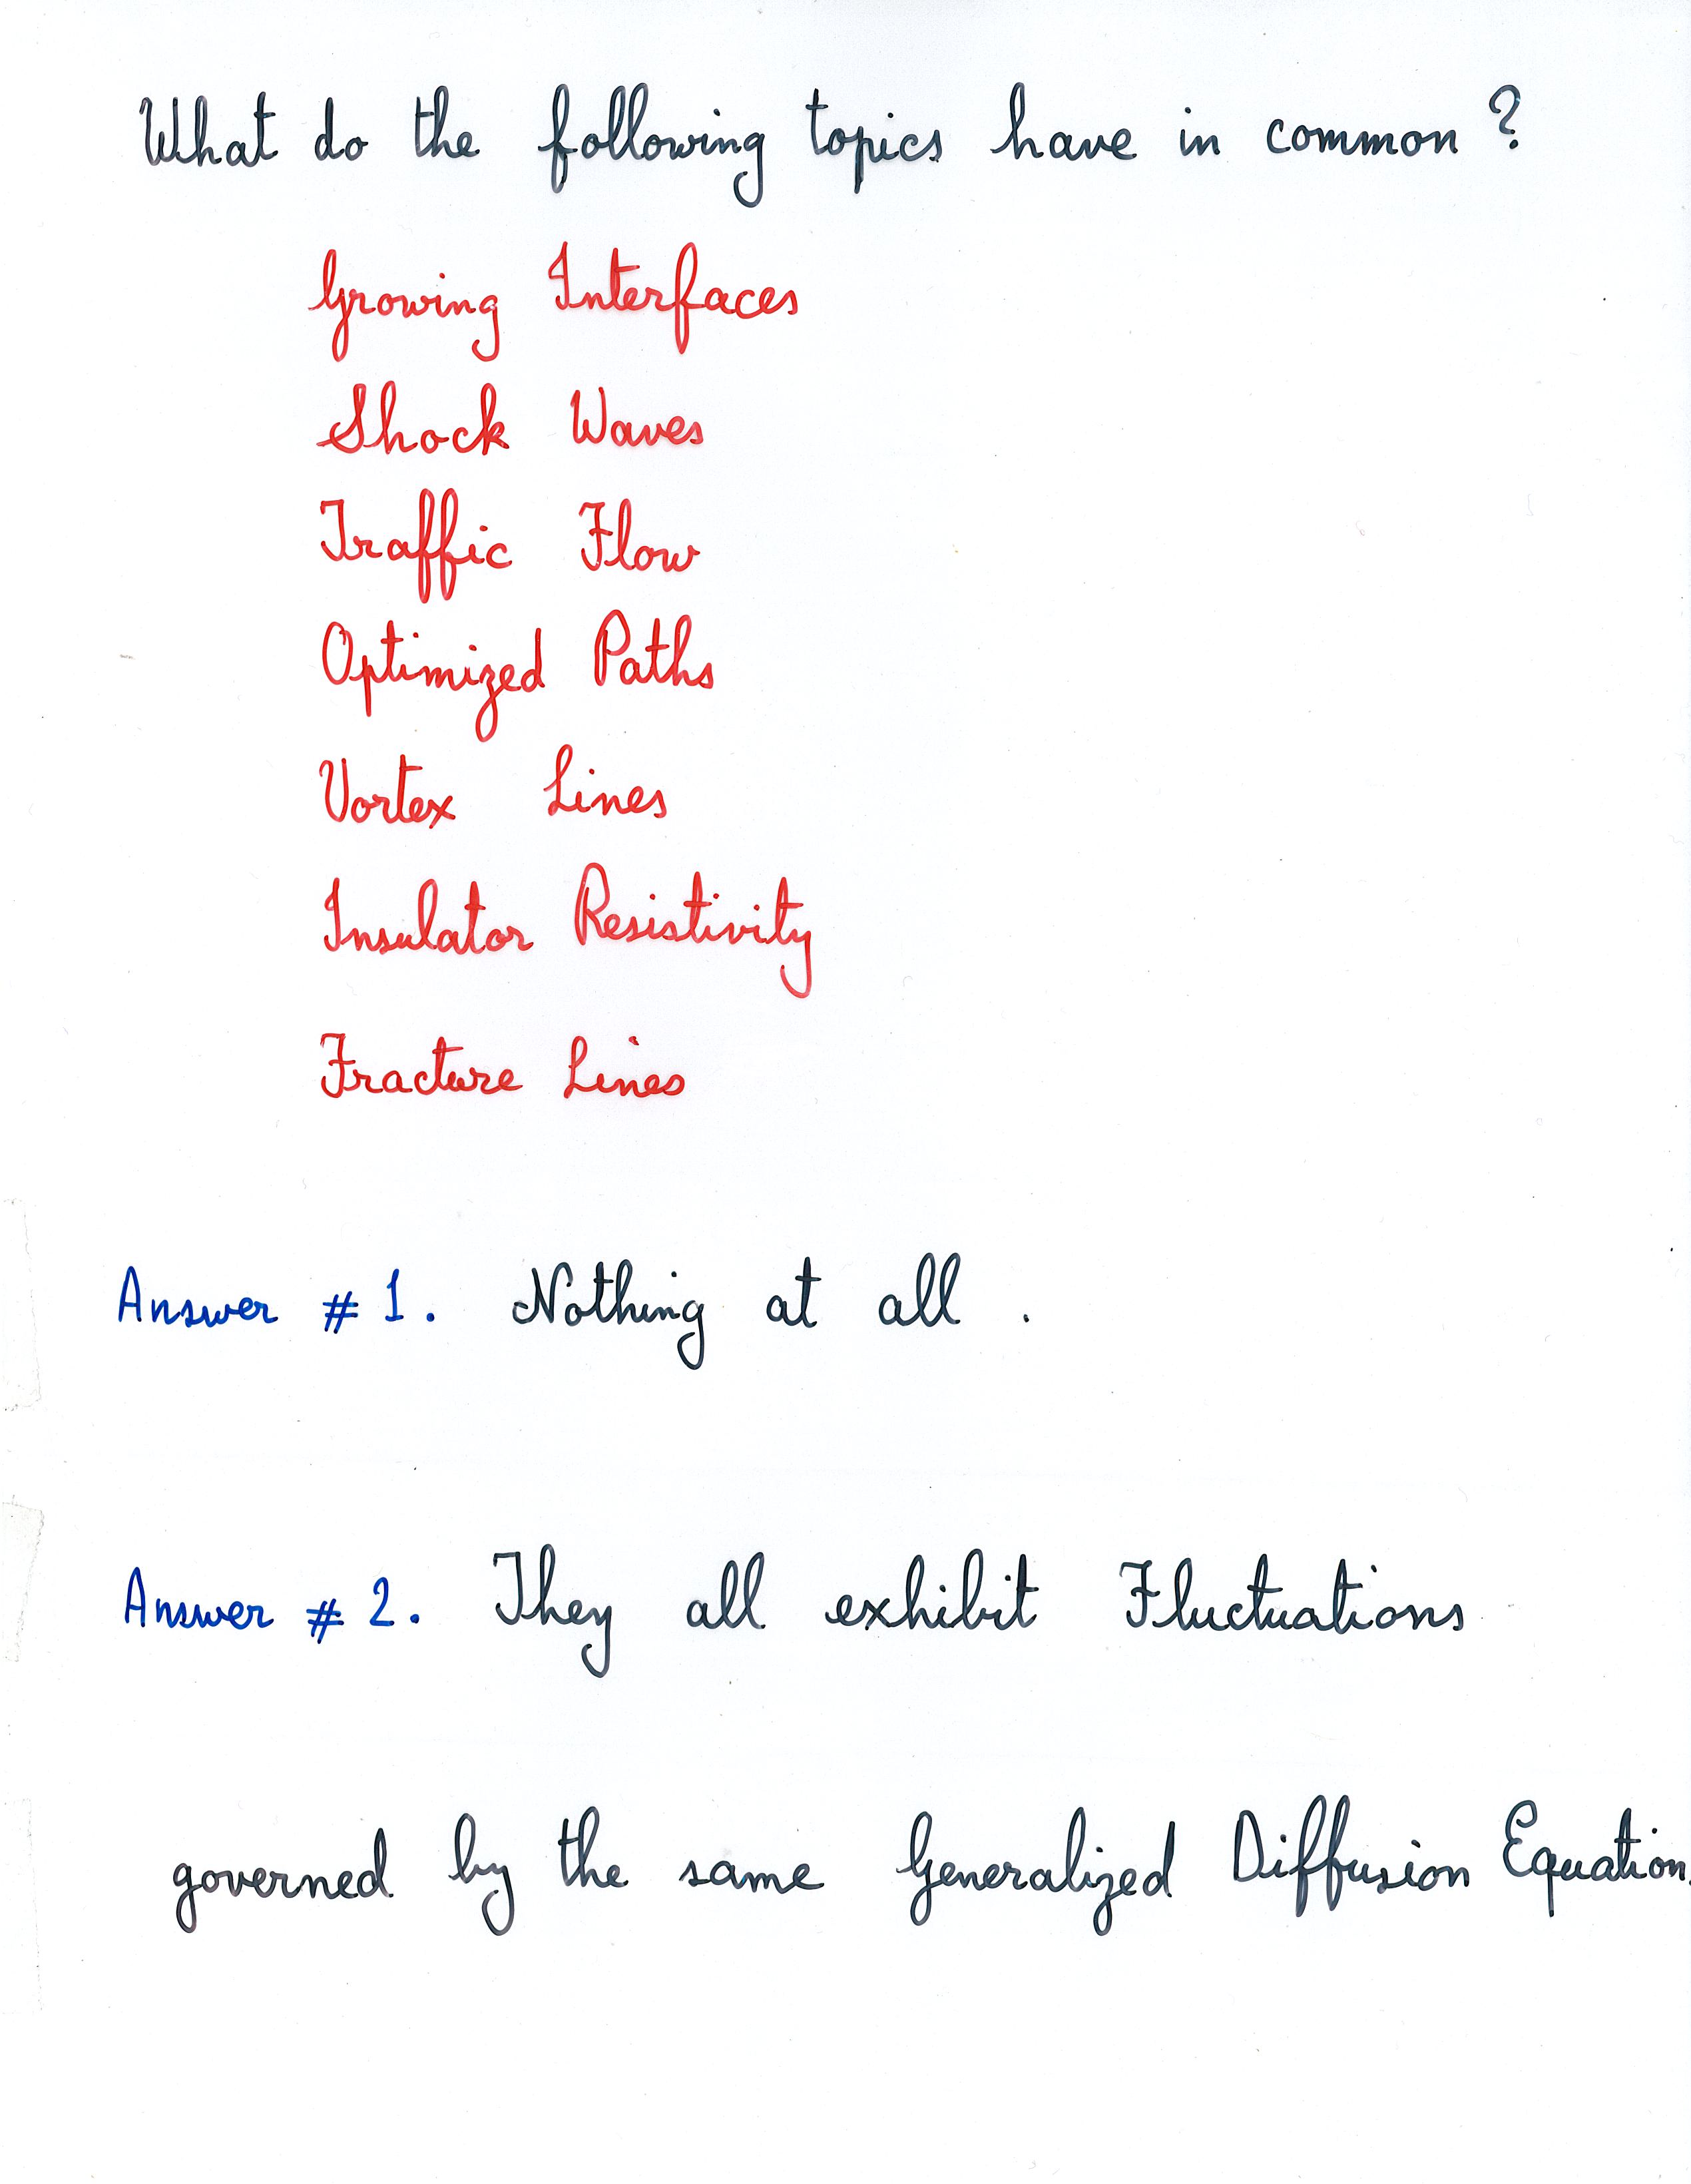 What do the following topics have in common ?
Growing Interfaces
Shock Waves
Traffic Flow
Optimized Paths
Vortex Lines
Insulator Resistivity
Fracture Lines
Answer # 1. Nothing at all .
Answer # 2. They all exhibit Fluctuations
governed by the same Generalized Diffusion Equation.